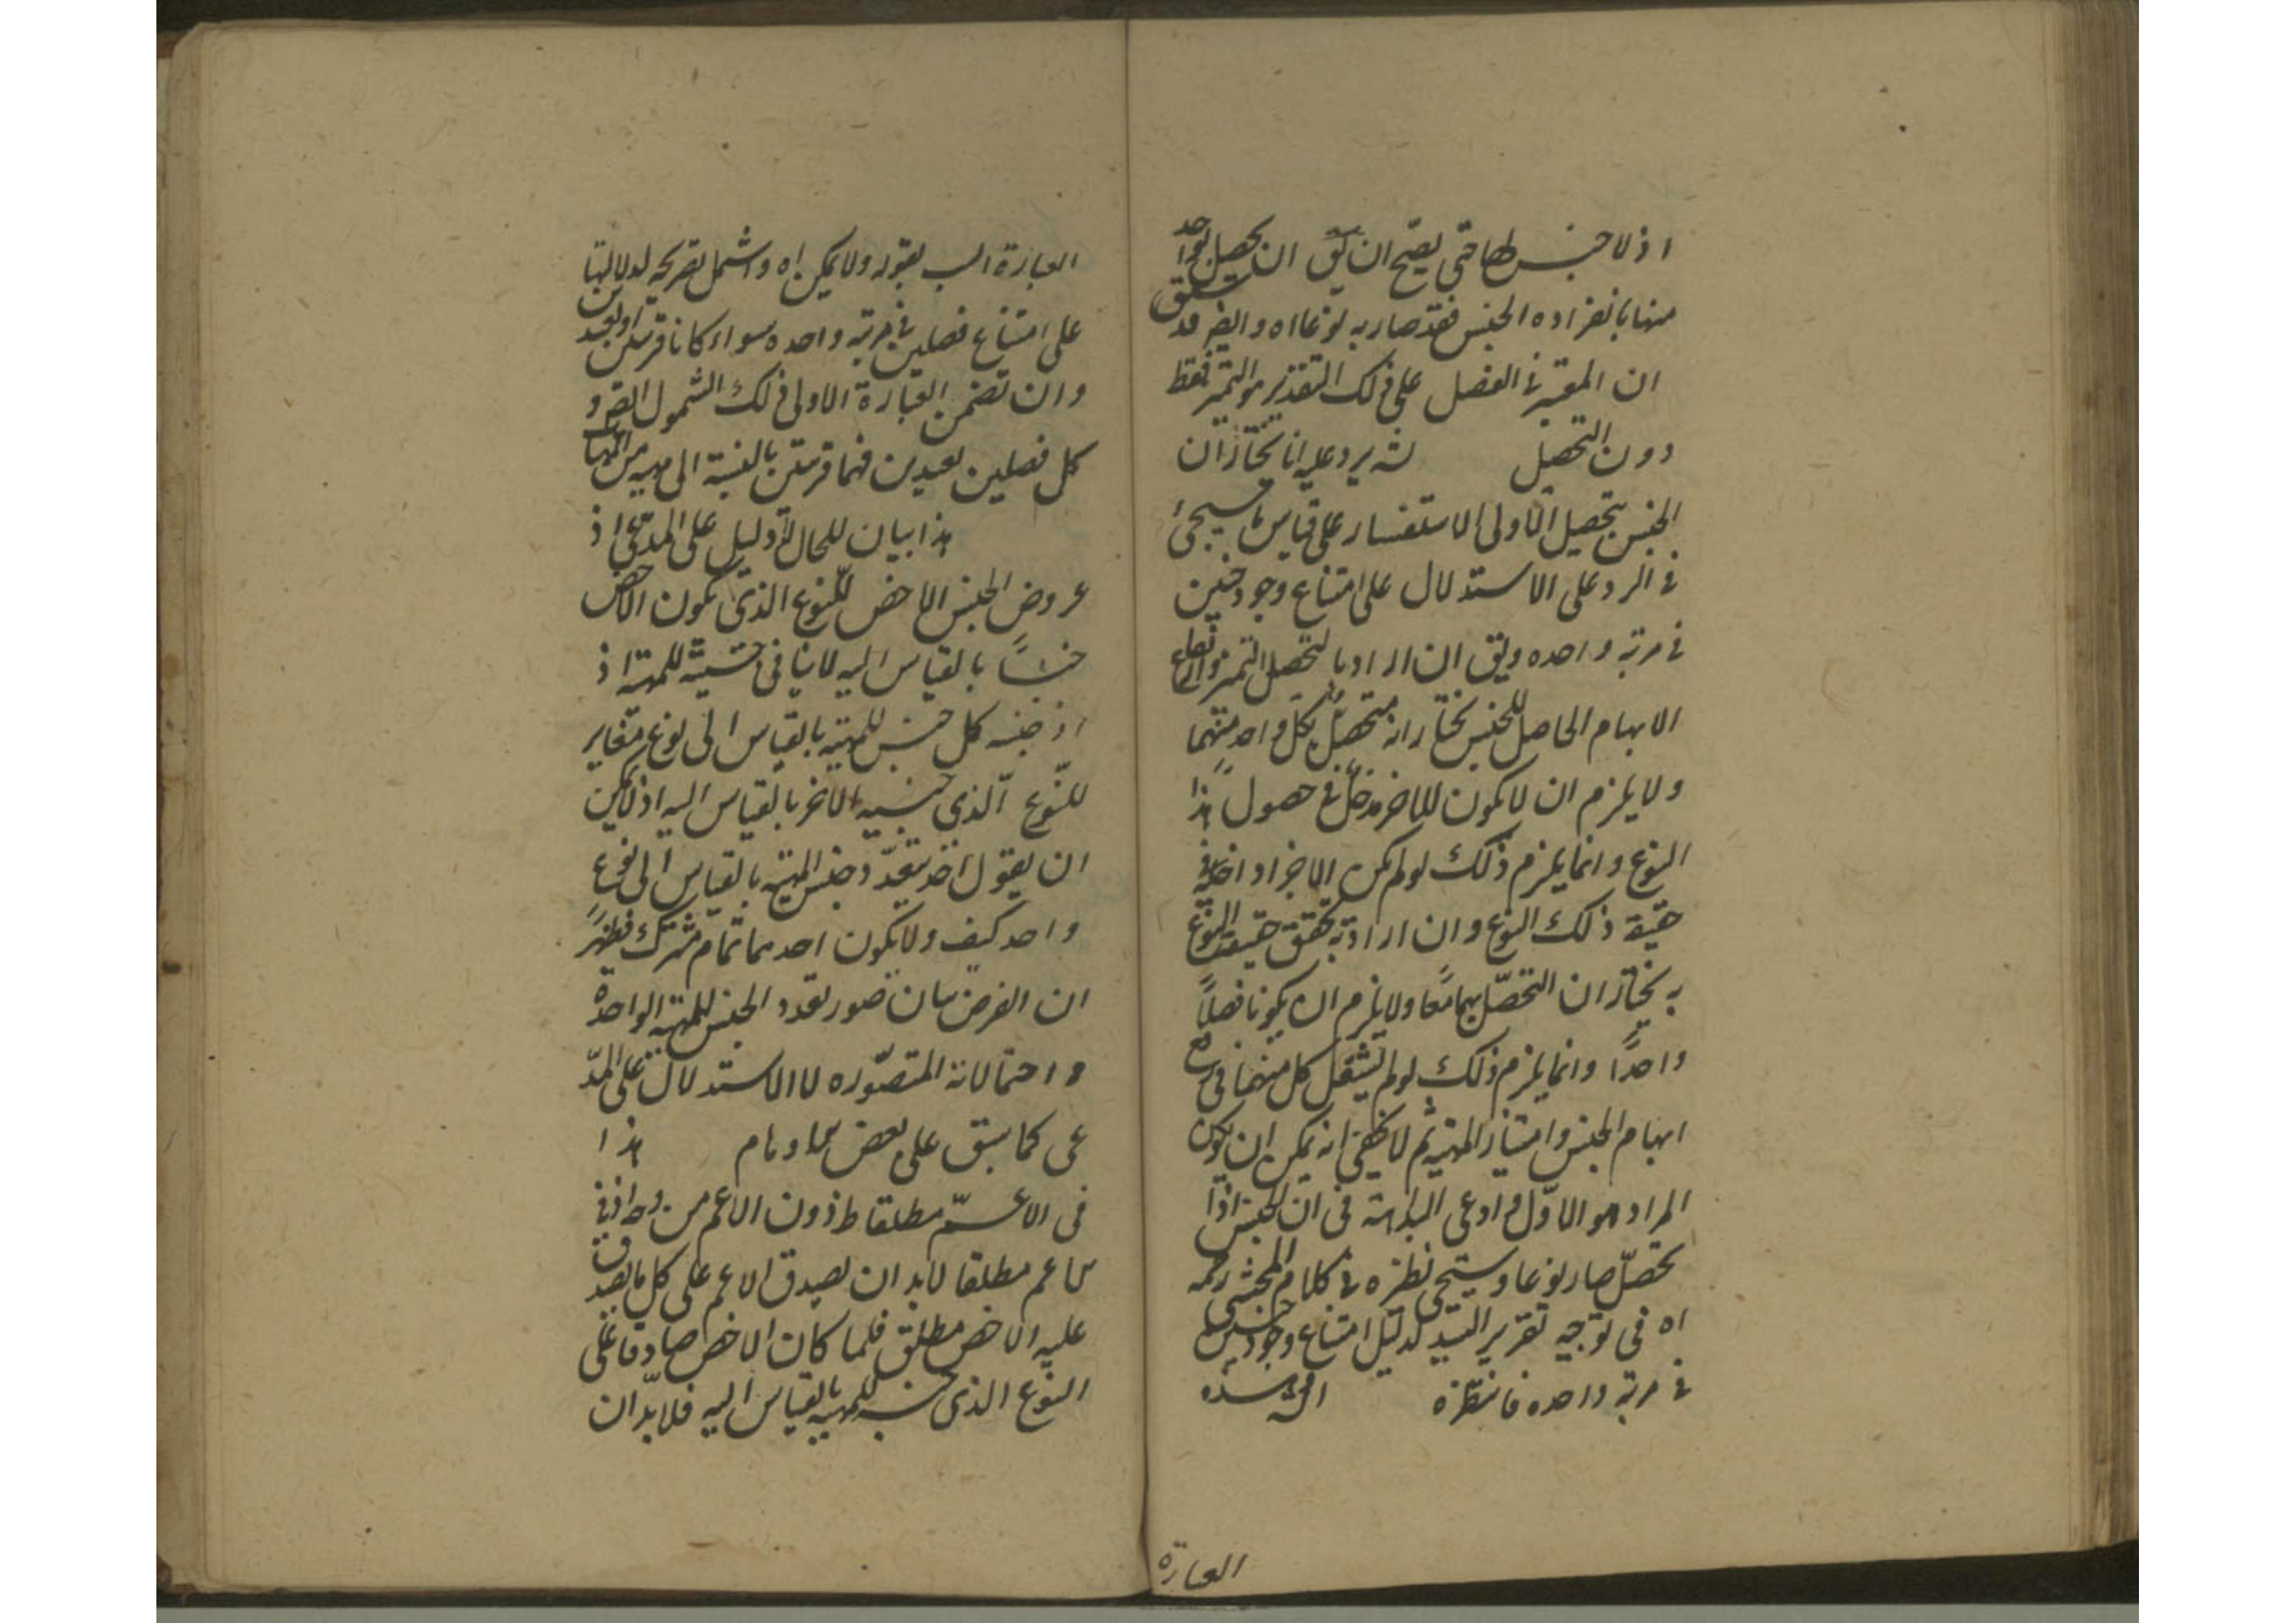 اذ لا جنس لها حتى يصح ان يق ان يحصل بواحد
منها بانفراده الجنس فقد صار به نوعا اه وايض قد سبق
ان المعتبر في الفصل على ذلك التقدير هو التميز فقط
دون التحصيل يرد عليه انا نختار ان
الجنس بتحصيل الاولى الاستفسار على قياس ما سيجئ
في الرد على الاستدلال على امتناع وجود جنسين
في مرتبة واحده ويق ان اراد بالتحصل التميز وارتفاع
الابهام الحاصل للجنس نختار انه متحصل بكل واحد منهما
ولا يلزم ان لا يكون للاخر مدخل في حصول هذا
النوع وانما يلزم ذلك لو لم يكن الاخر داخلا في
حقيقة ذلك النوع وان اراد به تحقق حقيقة النوع
به نختار ان التحصل بهما معا ولا يلزم ان يكونا فصلا
واحدا وانما يلزم ذلك لو لم يستقل كل منهما في رفع
ابهام الجنس وامتياز المهية ثم لا يخفى انه يمكن ان يكون
المراد هو الاول وادعى البداهة في ان الجنس اذا
تحصل صار نوعا وسيجئ نظيره في كلام المحشي رحمه
اه في توجيه تقرير السيد لدليل امتناع وجود جنسين
في مرتبة واحده فانتظره
العبارة
العبارة بقوله ولا يمكن اه واشمل تصريحه لدلالتها
على امتناع فصلين في مرتبة واحده سواء كانا قريبين او بعيدين
وان تضمن العبارة الاولى ذلك الشمول ايض و
كل فصلين بعيدين فهما قريبين بالنسبة الى مهية من المهيات
هذا بيان للحال لا دليل على المدعى اذ
عروض الجنس الاخص للنوع الذي يكون الاخص
جنسا بالقياس اليه لا ينافي جنسيته للمهية اذ
اذ جنسه كل جنس للمهية بالقياس الى نوع مغاير
للنوع الذي جنسية الاخر بالقياس اليه اذ لا يمكن
ان يقول احد بتعدد جنس المهية بالقياس الى نوع
واحد كيف ولا يكون احدهما تمام مشترك فظهر
ان الغرض بيان صور تعدد الجنس للمهية الواحدة
و احتمالاته المتصوره لا الاستدلال على المد
عى كما سبق على بعض الاوهام هذا
في الاعم مطلقا ظ دون الاعم من وجه اذ في
الاعم مطلقا لابد ان يصدق الاعم على كل ما يصدق
عليه الاخص مطلق فلما كان الاخص صادقا على
النوع الذي جنس للمهية بالقياس اليه فلابد ان